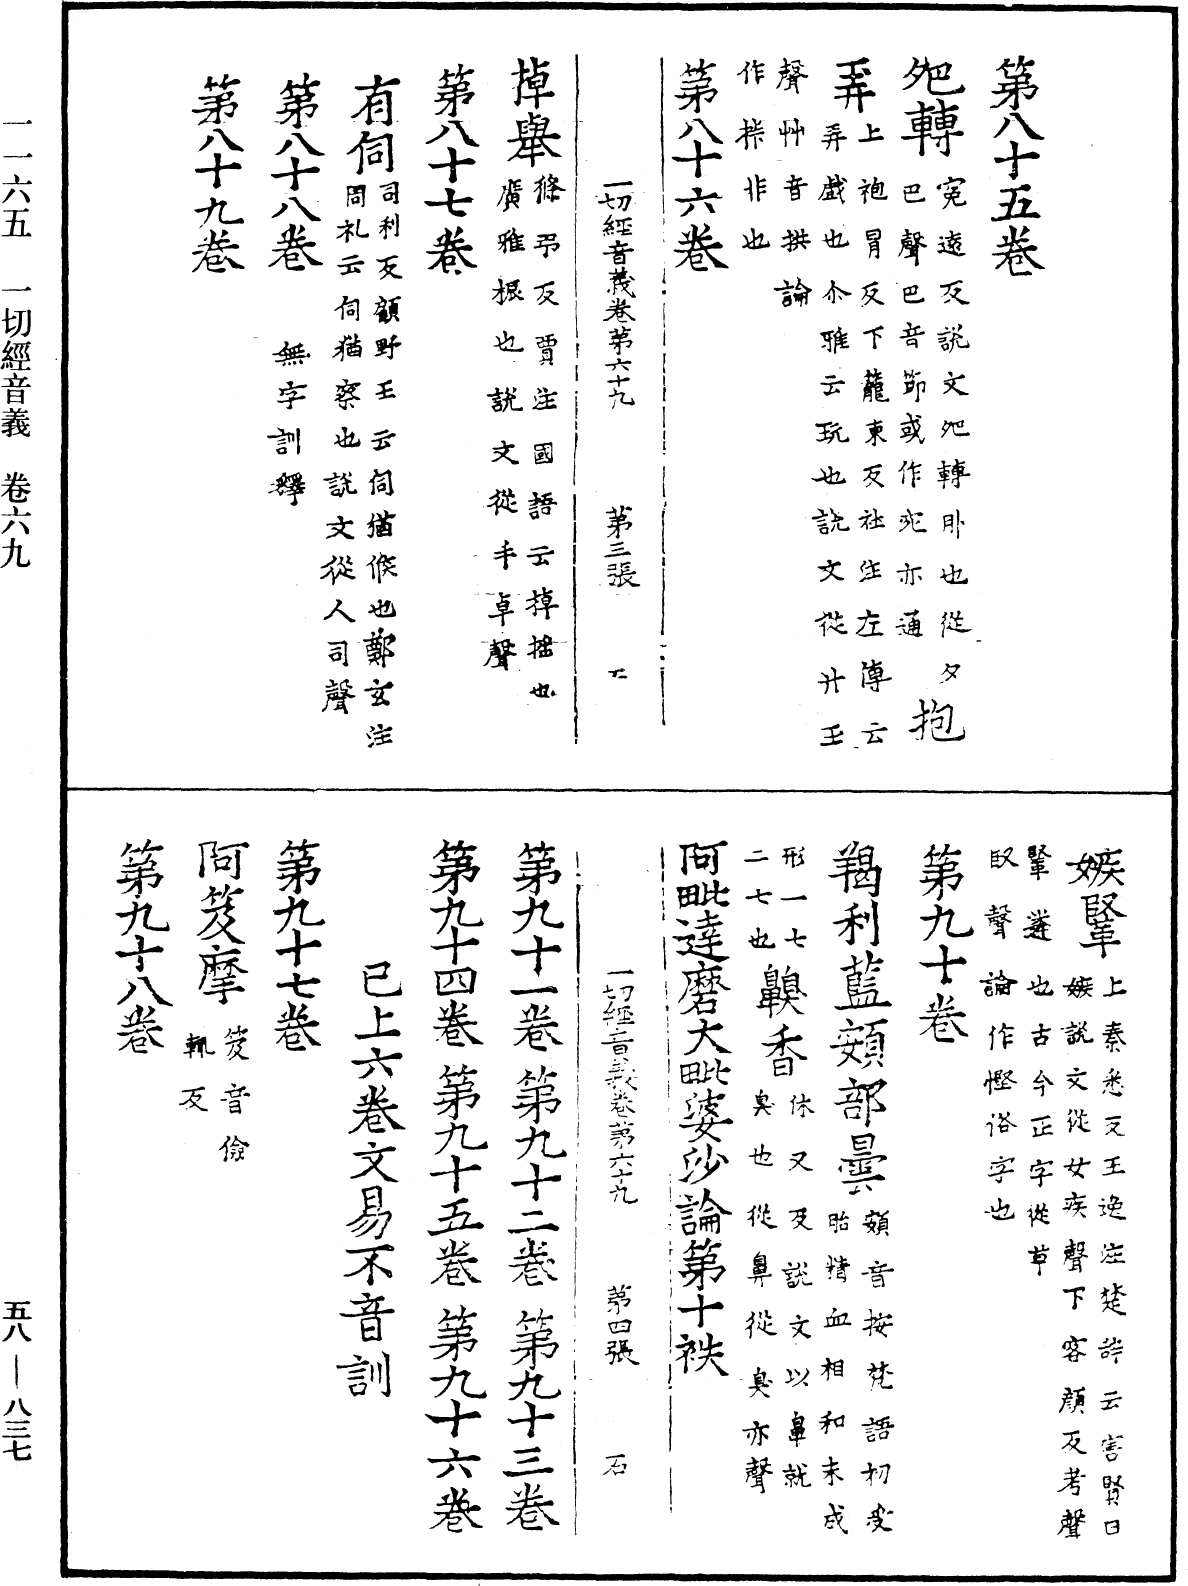 第八十五卷
夗轉 冤遠反說文夗轉卧也從夕
巴聲巴音節或作宛亦通 抱
弄 上袍冐反下籠東反杜注左傳云
弄戲也尒雅云玩也說文從廾玉
聲艸音拱論
作㧣非也
第八十六卷
一切經音義卷第六十九 第三張
掉舉 條弔反賈注國語云掉搖也
廣雅振也說文從手卓聲
第八十七卷
有伺 司利反顧野王云伺猶候也鄭玄注
周礼云伺猶察也說文從人司聲
第八十八卷 無字訓釋
第八十九卷
嫉䝨 上秦悉反王逸注楚辞云害賢曰
嫉說文從女疾聲下客顏反考聲
䝨遴也古今正字從革
臤聲論作慳俗字也
第九十卷
羯利藍頞部曇 頞音按梵語初受
胎精血相和未成
形一七
二七也 齅香 休又反說文以鼻就
臭也從鼻從臭亦聲
阿毗達磨大毗婆沙論第十袟
一切經音義卷第六十九 第四張 石
第九十一卷 第九十二卷 第九十三卷
第九十四卷 第九十五卷 第九十六卷
已上六卷文易不音訓
第九十七卷
阿笈摩 笈音儉
輒反
第九十八卷
一一六五 一切經音義 卷六九
五八—八三七